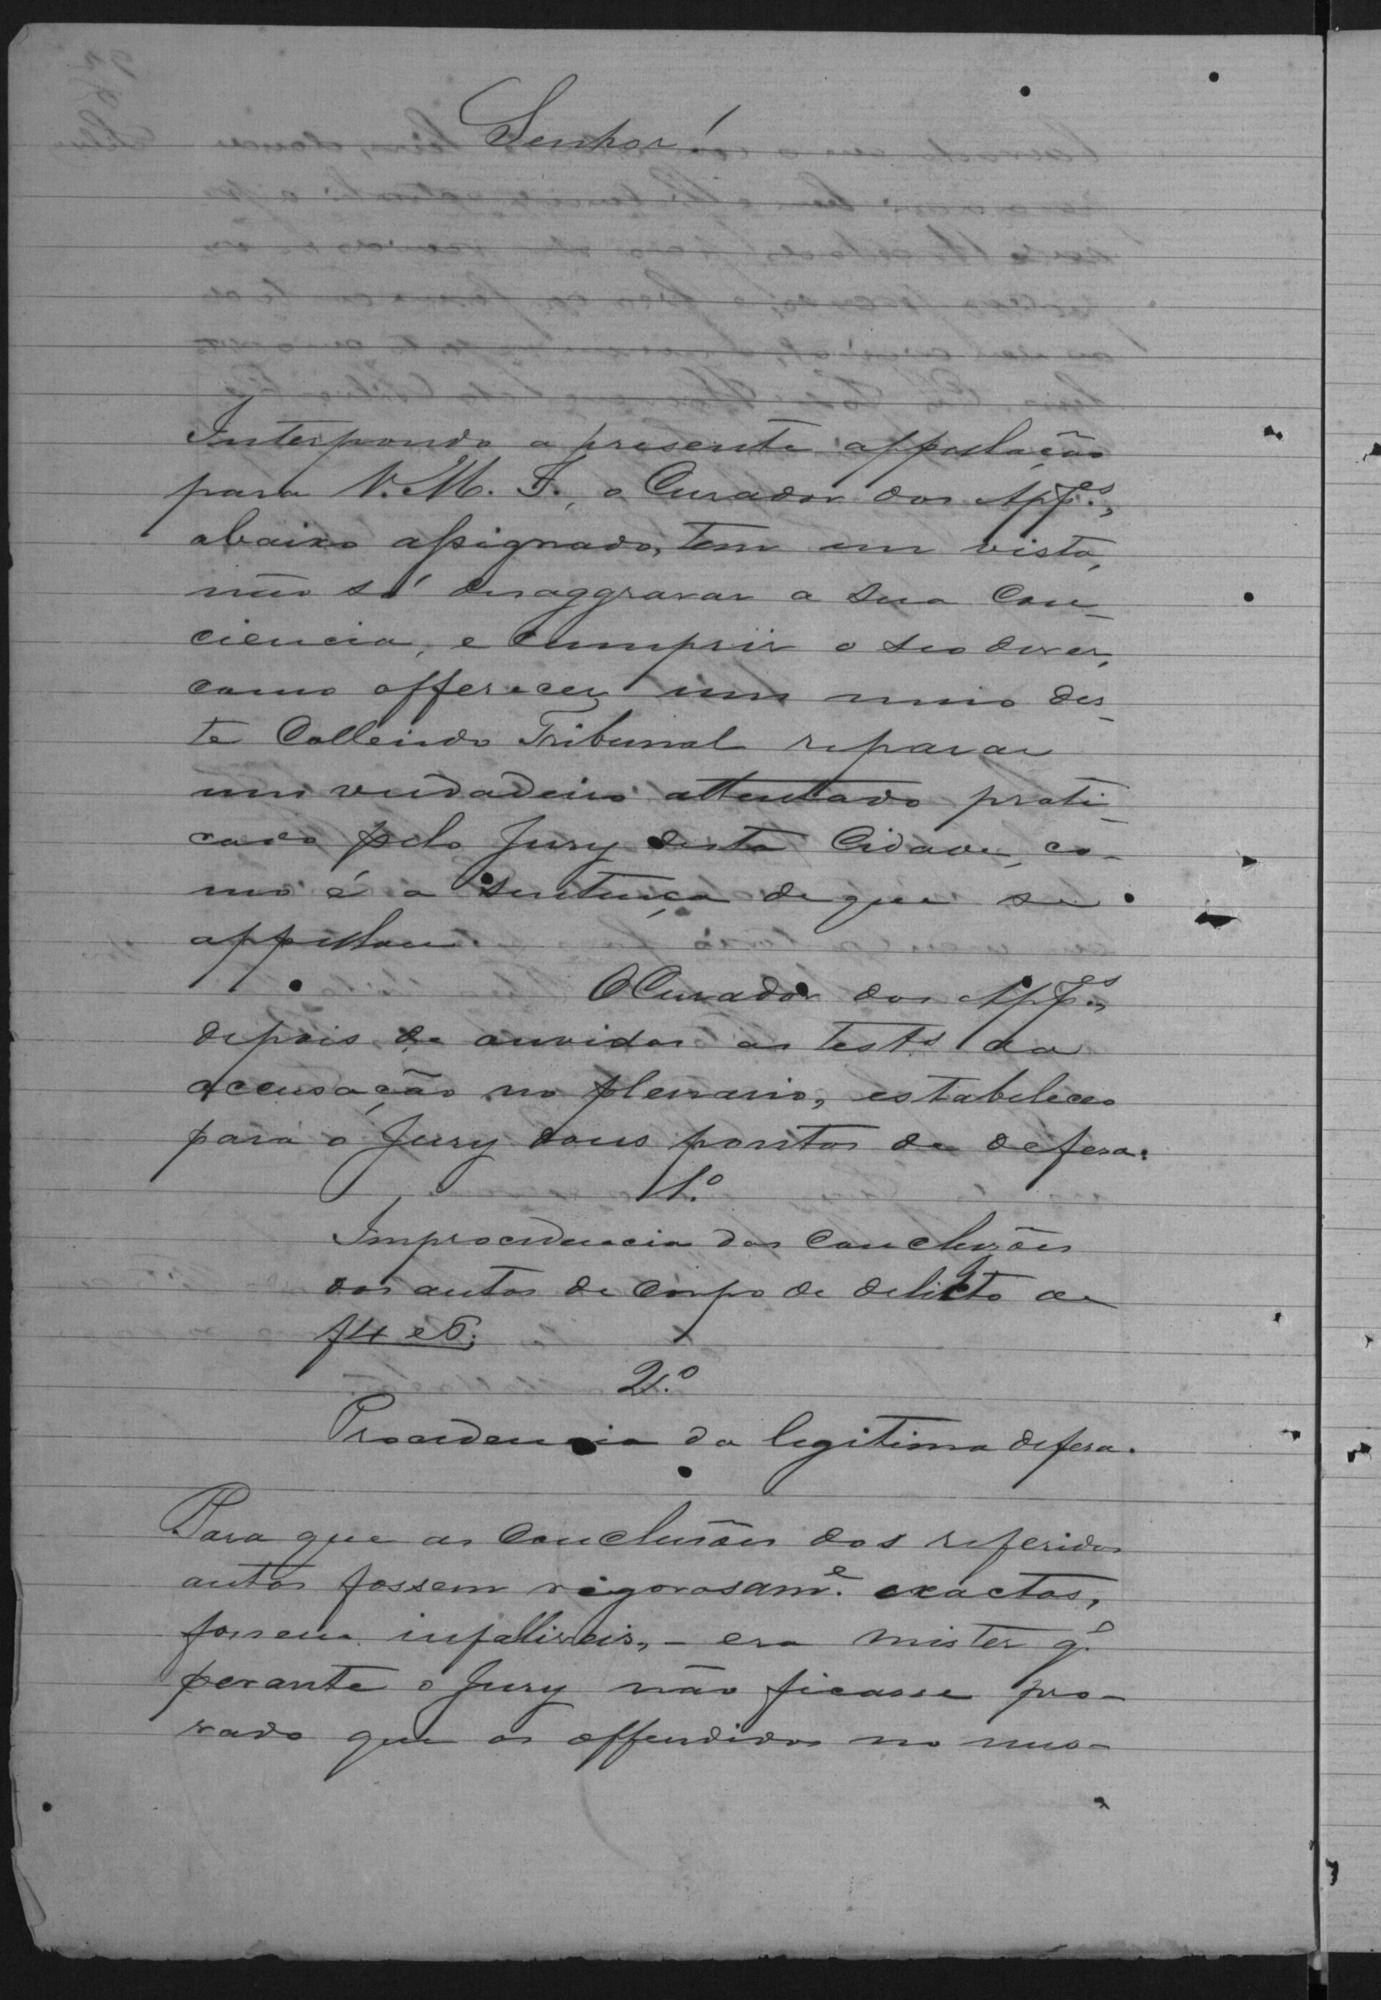 Senhor!
Interpondo a presente appellação
para V. M. I., o Curador dos App.es,
abaixo assignado, tem em vista,
não só desaggravar a sua Con-
ciencia, e cumprir o seo dever,
como offerecer um meio des-
te Collendo Tribunal reparar
um verdadeiro attentado prati-
cado pelo Jury desta Cidade, co-
mo é a sentença de que se
appellou.
O Curador dos App.es,
depois de ouvidas as test.s da
accusação no plenario, estabeleceo
para o Jury dous pontos de defesa:
1.º
Improcedencia das conclusões
dos autos de corpo de delicto de
f 4 e 6;
2.º
Procedencia da legitima defesa.
Para que as conclusões dos referidos
autos fossem rigorosam.e exactas,
fossem infalliveis, - era mister q.'
perante o Jury não ficasse pro-
vado que os offendidos no mes-